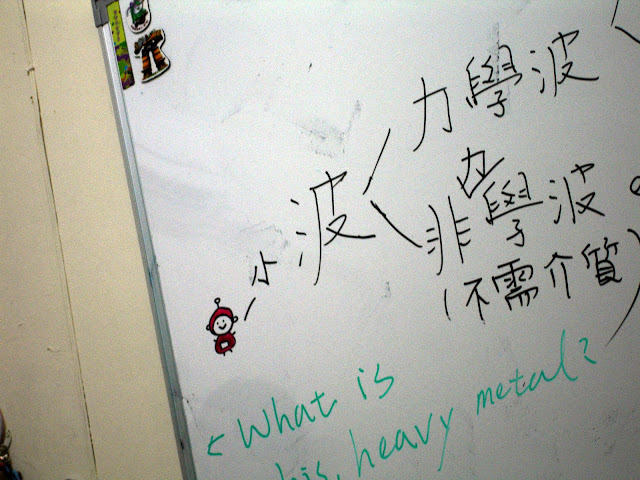 力學波
小波
非力學波
(不需介質)
< What is
his, heavy metal?